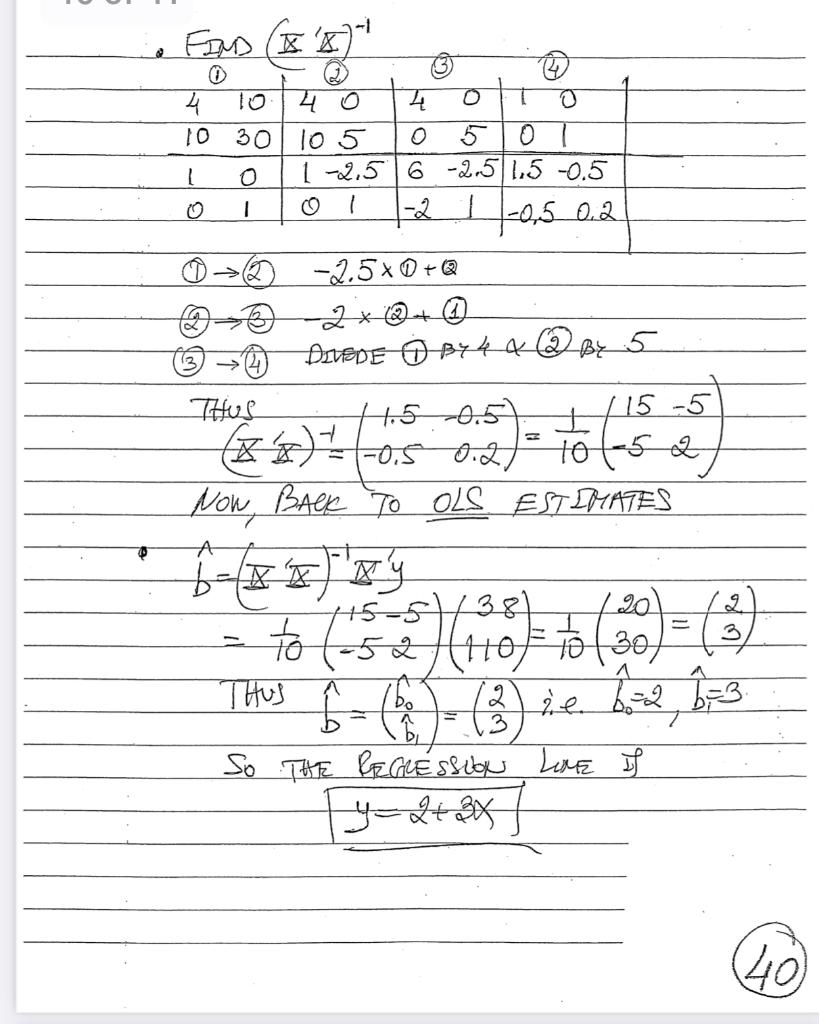 • FIND (X'X)⁻¹
① ② ③ ④
4 10 | 4 0 | 4 0 | 1 0
10 30 | 10 5 | 0 5 | 0 1
1 0 | 1 -2.5 | 6 -2.5 | 1.5 -0.5
0 1 | 0 1 | -2 1 | -0,5 0.2
① → ② -2.5 x ① + ②
② → ③ -2 x ② + ①
③ → ④ DIVIDE ① BY 4 & ② BY 5
THUS
(X'X)⁻¹ = (1.5 -0.5; -0.5 0.2) = 1/10 (15 -5; -5 2)
NOW, BACK TO OLS ESTIMATES
• b̂ = (X'X)⁻¹ X'y
= 1/10 (15 -5; -5 2) (38; 110) = 1/10 (20; 30) = (2; 3)
THUS b̂ = (b̂₀; b̂₁) = (2; 3) i.e. b̂₀=2, b̂₁=3
SO THE REGRESSION LINE IS
y = 2 + 3x
40